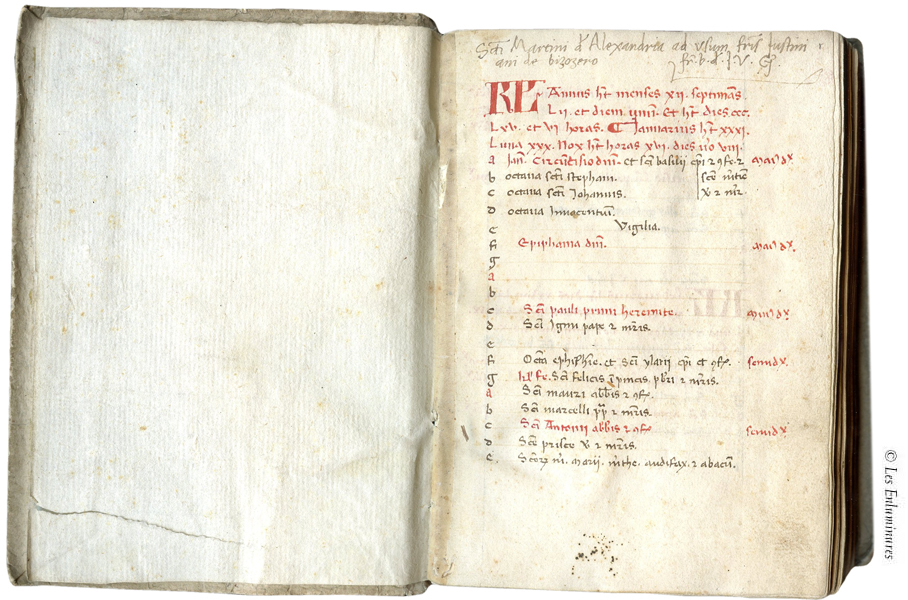 Scti Martini d Alexandria ad usum fris Justini
ani de bizozero fr. b. d. J. V. G
KL Annus ht menses xii. septimas.
Lii. et diem unum. Et ht dies ccc.
Lxv. et vi horas. Januarius ht xxxi.
Luna xxx. Nox ht horas xvi. dies uo viii.
a Jan. Circucisio dni. et sci basilij epi z 9fe. z mai dx.
b octava scti stephani. sce
c octava scti Johannis. v z mr.
d octava Innocentum.
e Vigilia.
f Epiphania dni. mai dx.
g
a
b
c Sci pauli primi heremite. mai dx.
d Sci Igini pape z mris.
e
f Octa ephiphie. et sci ylarii epi et 9f. semidx.
g Sci felicis i pincis. pbri z mris.
a Sci mauri abbis z 9f.
b Sci marcelli pp z mris.
c Sci Antonii abbis z 9f. semidx.
d Sce prisce v z mris.
e Scorz m. marii. mthe. audifax. z abacu.
© Les Enluminures